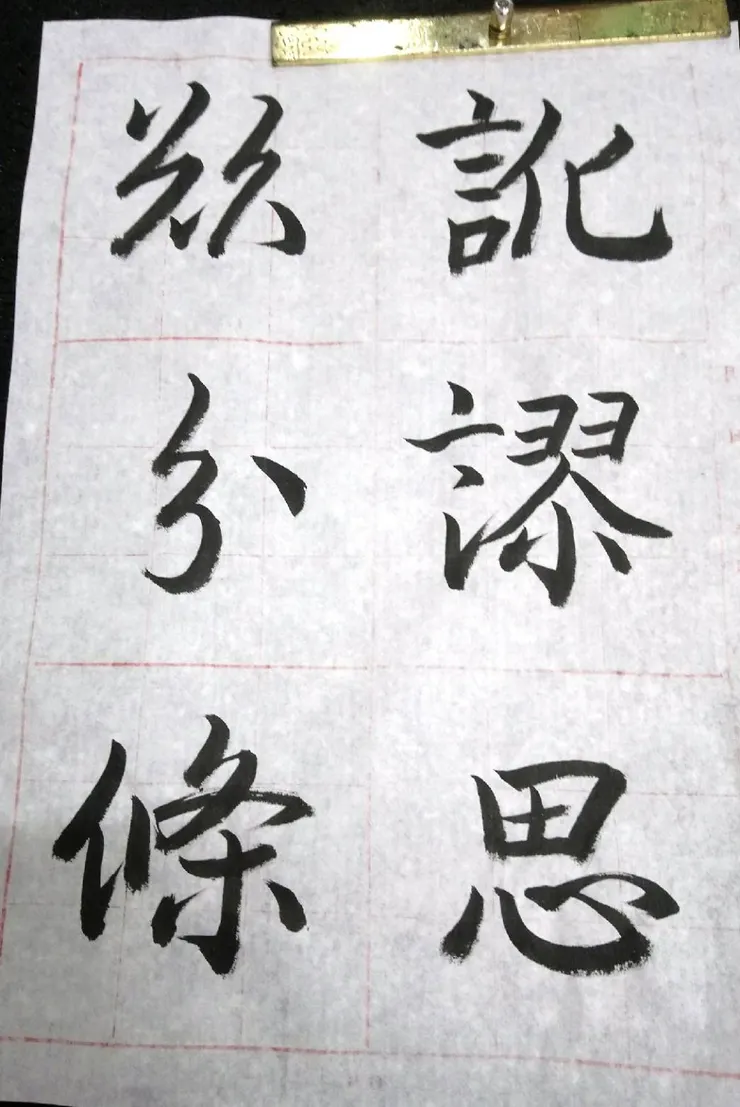 訛謬思
欲分條